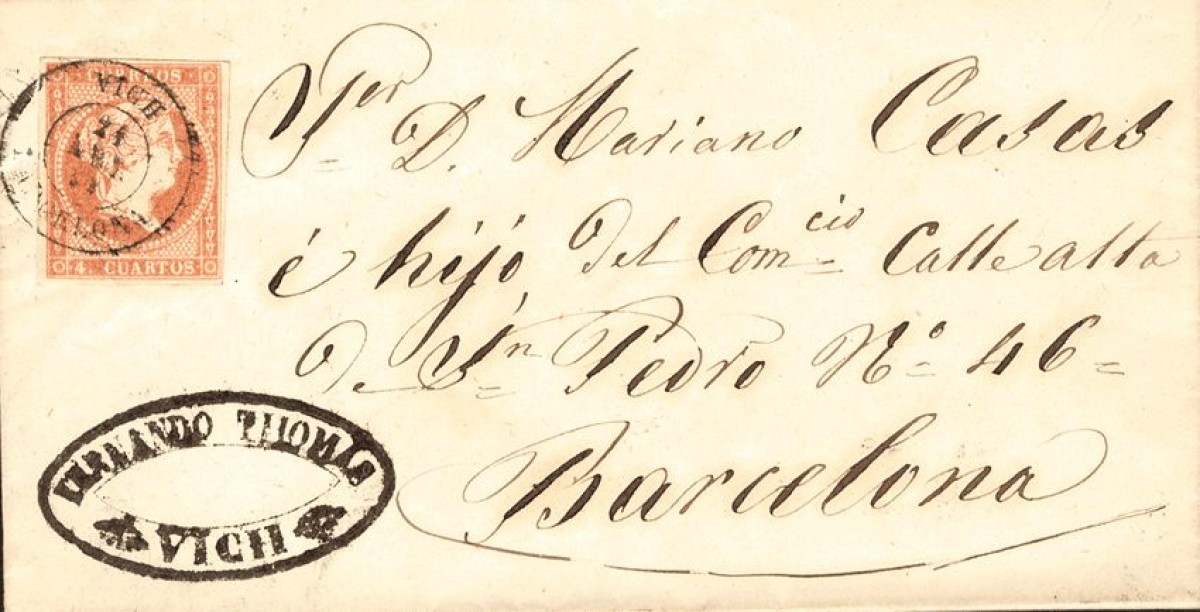 CORREOS
VICH
21
BARCELONA
4 CUARTOS
Sor D. Mariano Casas
é hijo del Comcio Calle alta
de Sn Pedro No 46=
Barcelona
FERNANDO THOMAS
VICH